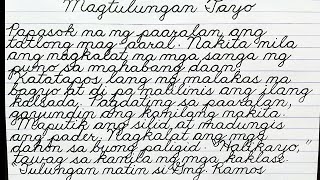 Magtulungan Tayo
Papasok na ng paaralan ang
tatlong mag-aaral. Nakita nila
ang nagkalat na mga sanga ng
puno sa mahabang daan.
Katatapos lang ng malakas na
bagyo at di pa malilinis ang ilang
kalsada. Pagdating sa paaralan,
gayundin ang kanilang nakita.
Maputik ang silid at madungis
ang pader. Nagkalat ang mga
dahon sa buong paligid. "Halikayo,"
tawag sa kanila ng mga kaklase.
"Tulungan natin si Gng. Ramos